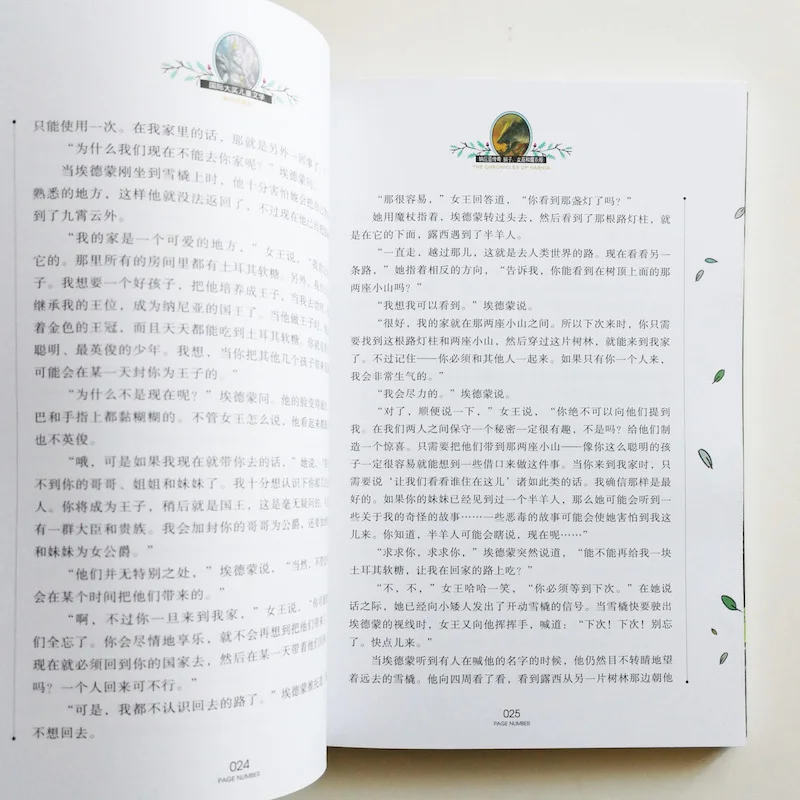 国际大奖儿童文学
只能使用一次。在我家里的话，那就是另外一回事了
“为什么我们现在不能去你家呢？”埃德蒙问。
当埃德蒙刚坐到雪橇上时，他十分害怕她会
熟悉的地方，这样他就没法返回了，不过现在他已
到了九霄云外。
“我的家是一个可爱的地方，”女王说，“我
它的。那里所有的房间里都有土耳其软糖。另外，
子。我想要一个好孩子，把他培养成王子，当我去
继承我的王位，成为纳尼亚的国王了。当他做王子时，
着金色的王冠，而且天天都能吃到土耳其软糖。你
聪明、最英俊的少年。我想，当你把其他几个孩子带
可能会在某一天封你为王子的。”
“为什么不是现在呢？”埃德蒙问。他的脸变得
巴和手指上都黏糊糊的。不管女王怎么说，他看起来
也不英俊。
“哦，可是如果我现在就带你去的话，”她说，
不到你的哥哥、姐姐和妹妹了。我十分想认识下你
人。你将成为王子，稍后就是国王，这是毫无疑问
有一群大臣和贵族。我会加封你的哥哥为公爵，还要
和妹妹为女公爵。”
“他们并无特别之处，”埃德蒙说，“当然，
会在某个时间把他们带来的。”
“啊，不过你一旦来到我家，”女王说，“你
们全忘了。你会尽情地享乐，就不会再想到把他们
现在就必须回到你的国家去，然后在某一天带着他们
吗？一个人回来可不行。”
“可是，我都不认识回去的路了。”埃德蒙
不想回去。
024
PAGE NUMBER
纳尼亚传奇 狮子、女巫和魔衣橱
THE CHRONICLES OF NARNIA
“那很容易，”女王回答道，“你看到那盏灯了吗？”
她用魔杖指着，埃德蒙转过头去，然后看到了那根路灯柱，就
是在它的下面，露西遇到了半羊人。
“一直走，越过那儿，这就是去人类世界的路。现在看看另一
条路，”她指着相反的方向，“告诉我，你能看到在树顶上面的那
两座小山吗？”
“我想我可以看到。”埃德蒙说。
“很好，我的家就在那两座小山之间。所以下次来时，你只需
要找到这根路灯柱和两座小山，然后穿过这片树林，就能来到我家
了。不过记住——你必须和其他人一起来。如果只有你一个人来，
我会非常生气的。”
“我会尽力的。”埃德蒙说。
“对了，顺便说一下，”女王说，“你绝不可以向他们提到
我。在我们两人之间保守一个秘密一定很有趣，不是吗？给他们制
造一个惊喜。只需要把他们带到那两座小山——像你这么聪明的孩
子一定很容易就能想到一些借口来做这件事。当你来到我家时，只
需要说‘让我们看看谁住在这儿’诸如此类的话。我确信那是最
好的。如果你的妹妹已经见到过一个半羊人，那么她可能会听到一
些关于我的奇怪的故事……一些恶毒的故事可能会使她害怕到我这
儿来。你知道，半羊人可能会瞎说，现在呢……”
“求求你，求求你，”埃德蒙突然说道，“能不能再给我一块
土耳其软糖，让我在回家的路上吃？”
“不，不，”女王哈哈一笑，“你必须等到下次。”在她说
话之际，她已经向小矮人发出了开动雪橇的信号。当雪橇快要驶出
埃德蒙的视线时，女王又向他挥挥手，喊道：“下次！下次！别忘
了。快点儿来。”
当埃德蒙听到有人在喊他的名字的时候，他仍然目不转睛地望
着远去的雪橇。他向四周看了看，看到露西从另一片树林那边朝他
025
PAGE NUMBER